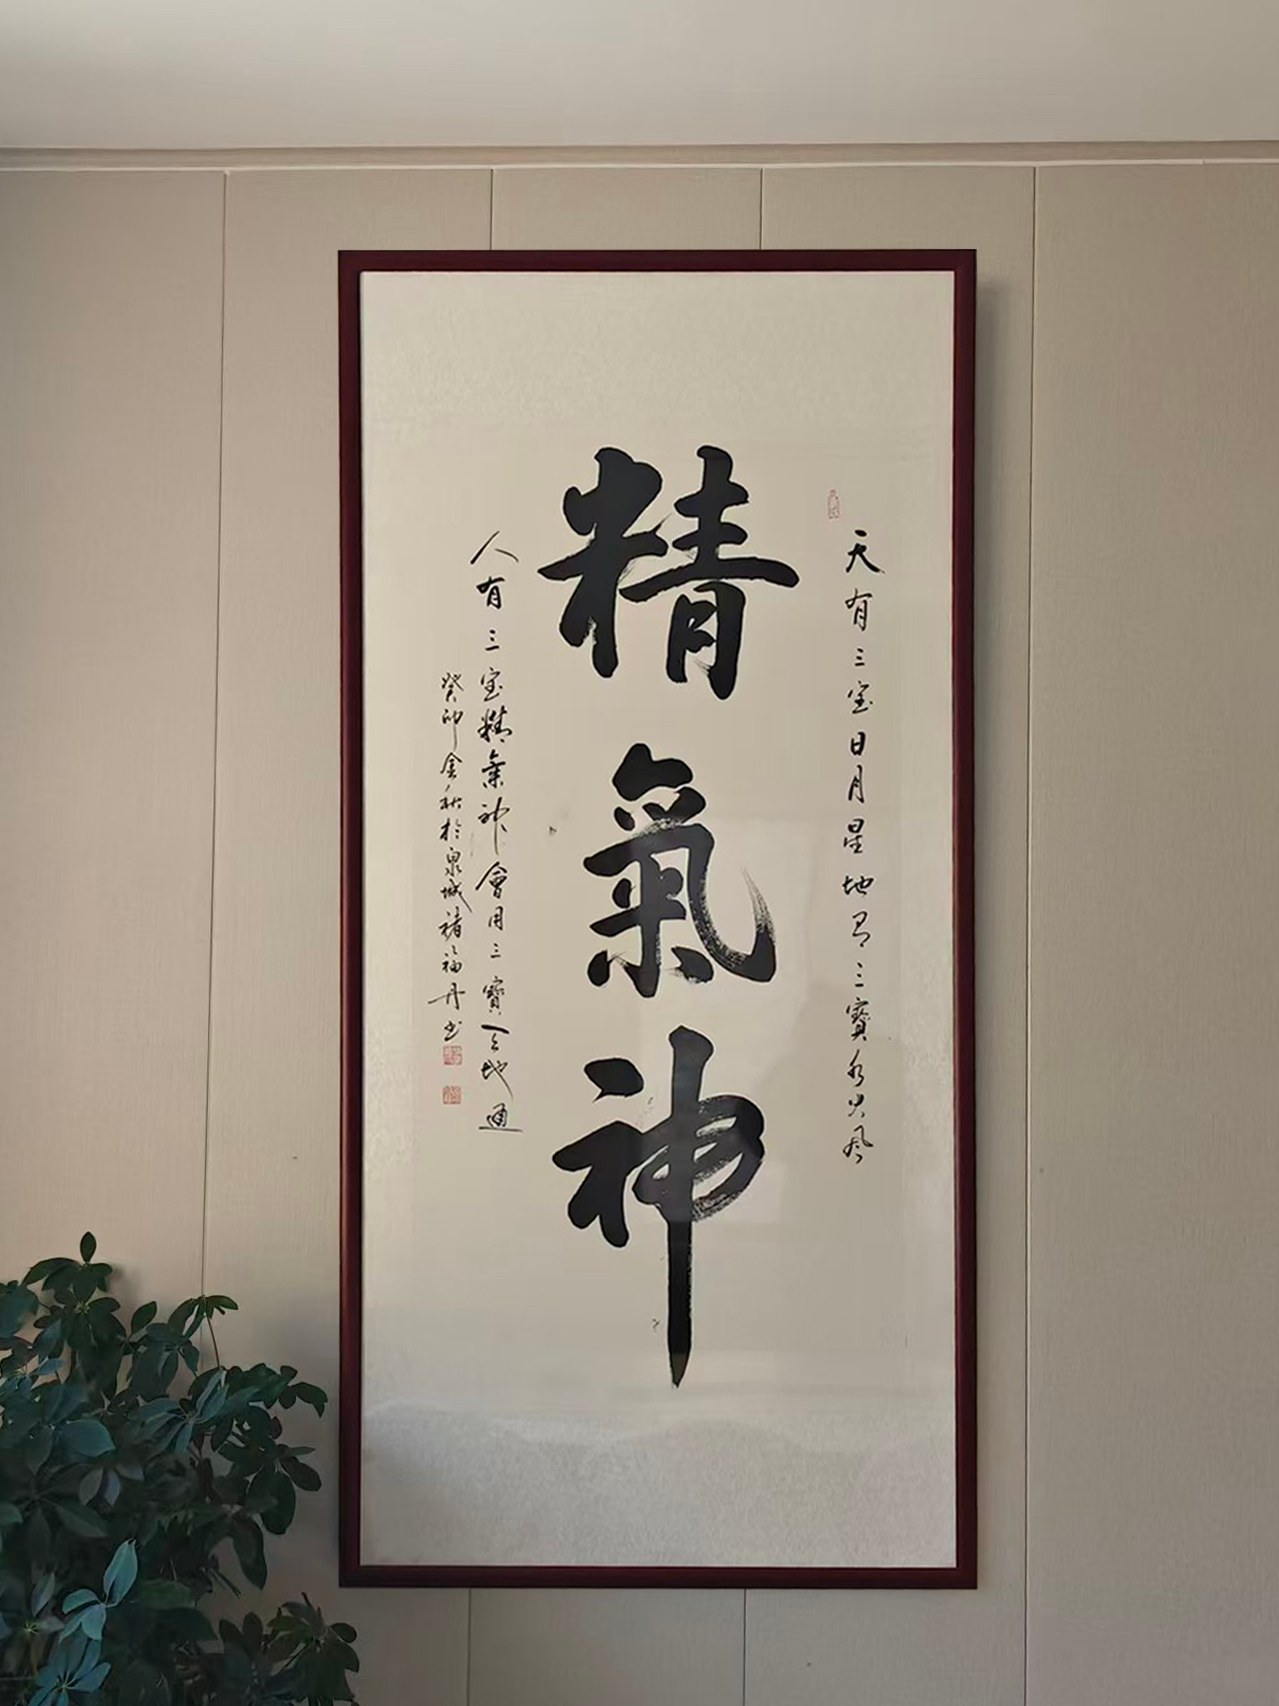 天有三宝日月星地有三寶水火风
精氣神
人有三宝精氣神會用三寶天地通
癸卯金秋於泉城褚福丹书